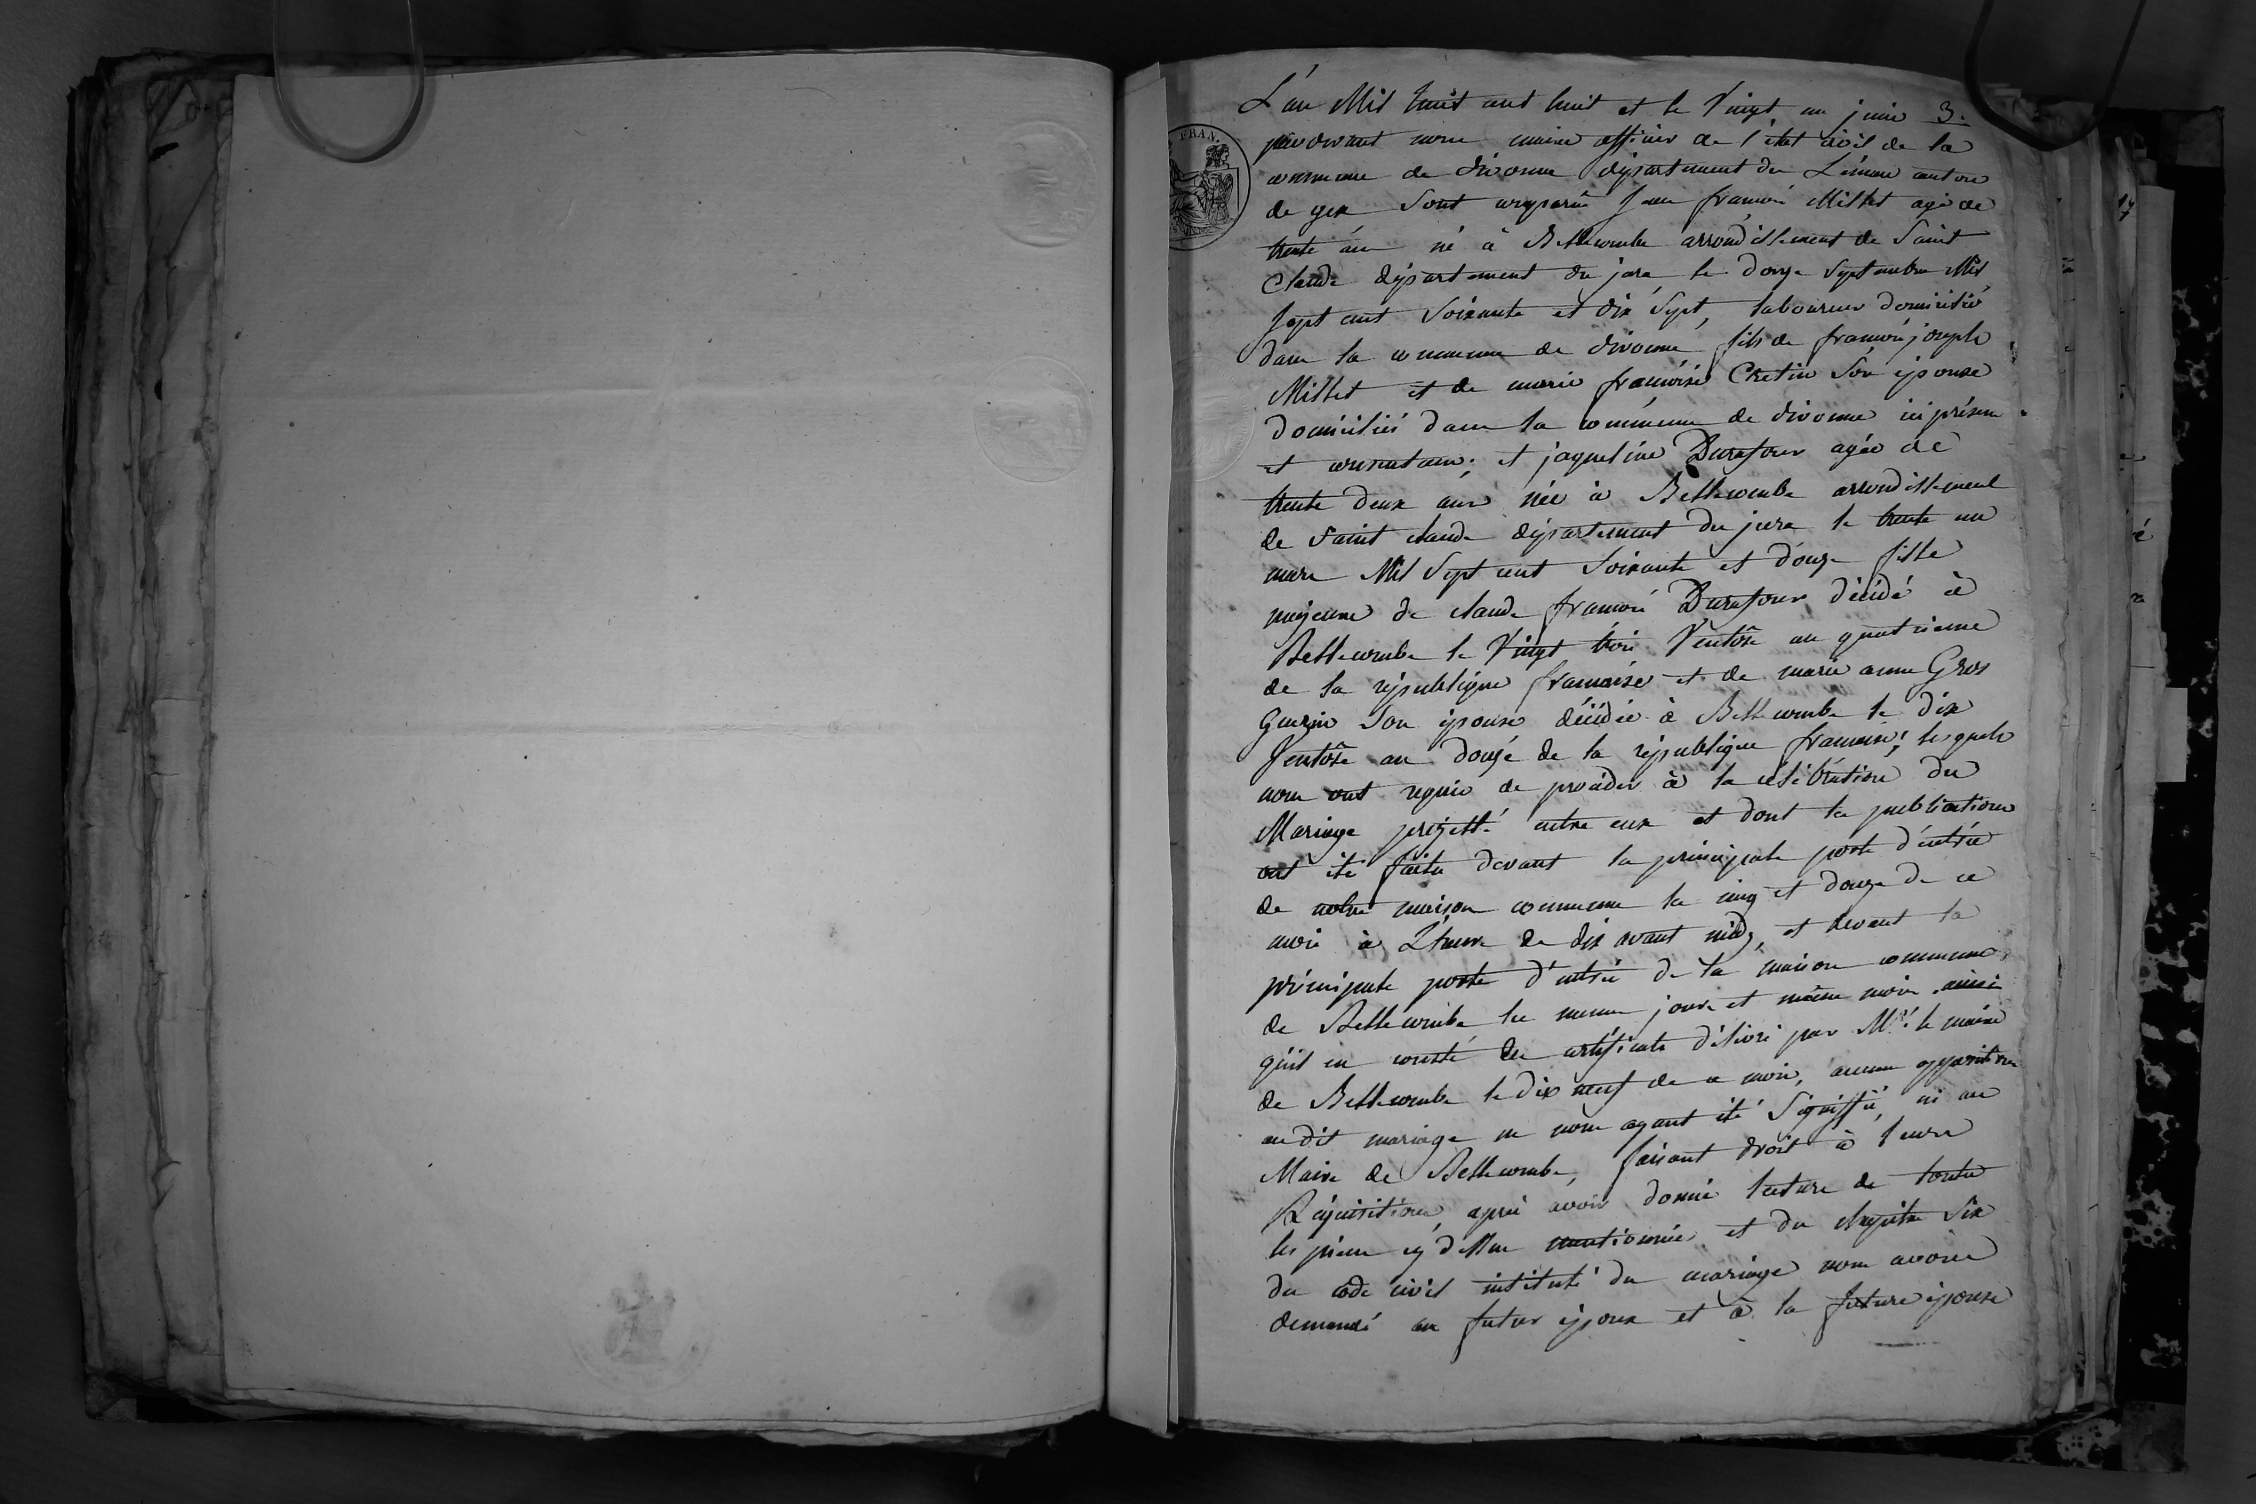 L'an Mil huit cent huit et le Vingt un juin 3.
FRAN.
pardevant nous maire officier de l'etat civil de la
commune de divonne département du Léman canton
de gex Sont comparûs Jean françois Millet agé de
trente ans né à Bellecombe arrondissement de Saint
Claude département du jura le douze Septembre Mil
Sept cent Soixante et dix Sept, laboureur domicilié
dans la commune de divonne fils de françois joseph
Millet et de marie françoise Cretin Son épouse
domiciliés dans la commune de divonne ici présens
et consentans; et jaqueline Durafour agée de
trente deux ans née à Bellecombe arrondissement
de Saint claude département du jura le trente un
mars Mil Sept cent Soixante et douze fille
majeure de claude françois Durafour, décédé à
Bellecombe le Vingt trois Ventôse an quatrieme
de la république française et de marie anne Gros
Gurzin Son épouse décédée à Bellecombe le dix
Ventôse an douze de la république française; lesquels
nous ont requis de procéder à la célébration du
Mariage projetté entre eux et dont les publications
ont été faites devant la principale porte d'entrée
de notre maison commune les cinq et douze de ce
mois à L'heure de dix avant midy, et devant la
principale porte d'entrée de la maison commune
de Bellecombe les mêmes jours et même mois ainsi
qu'il en conste des certificats délivré par Mr. le maire
de Bellecombe le dix neuf de ce mois, aucune opposition
au dit mariage ne nous ayant été Signiffié, ni au
Maire de Bellecombe, faisant droit à leurs
Réquisitions, après avoir donné lecture de toutes
les pièces cy dessus mentionnées, et du chapitre Six
du code civil intitulé du mariage nous avons
demandé au futur époux et à la future épouse